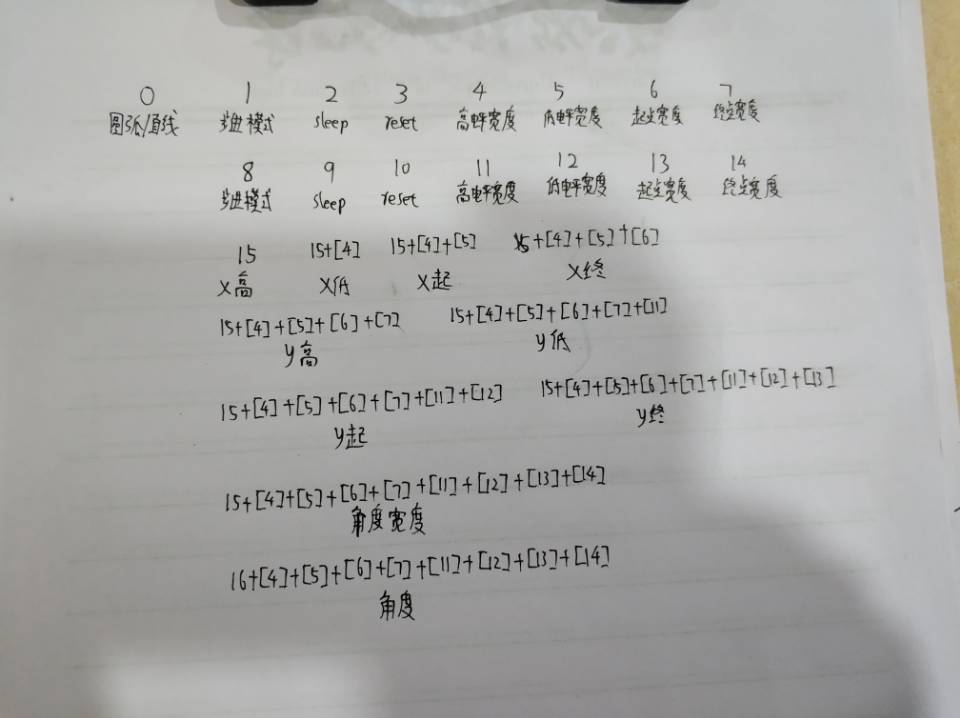 0 1 2 3 4 5 6 7
圆弧/直线 步进模式 sleep reset 高电平宽度 低电平宽度 起点宽度 终点宽度
8 9 10 11 12 13 14
步进模式 sleep reset 高电平宽度 低电平宽度 起点宽度 终点宽度
15 15+[4] 15+[4]+[5] 15+[4]+[5]+[6]
X高 X低 X起 X终
15+[4]+[5]+[6]+[7] 15+[4]+[5]+[6]+[7]+[11]
y高 y低
15+[4]+[5]+[6]+[7]+[11]+[12] 15+[4]+[5]+[6]+[7]+[11]+[12]+[13]
y起 y终
15+[4]+[5]+[6]+[7]+[11]+[12]+[13]+[14]
角度宽度
16+[4]+[5]+[6]+[7]+[11]+[12]+[13]+[14]
角度